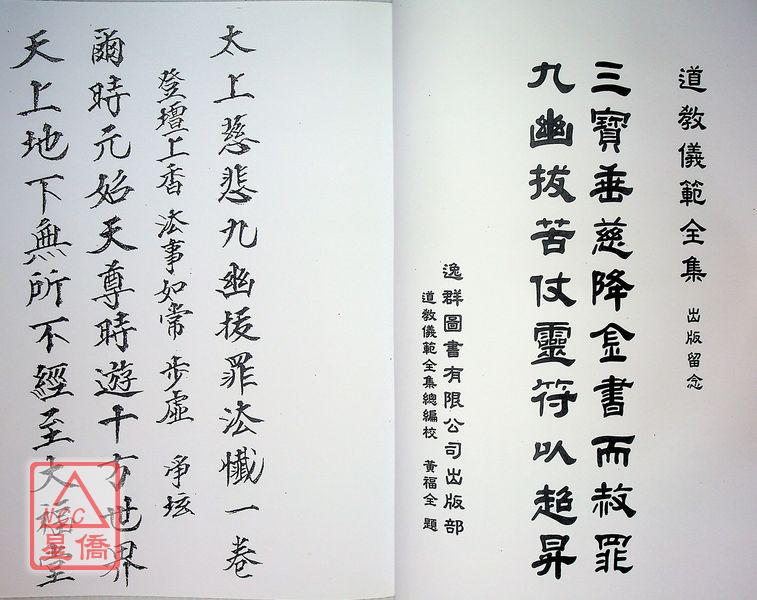 道教儀範全集 出版留念
三寶垂慈降金書而赦罪
九幽拔苦仗靈符以超昇
逸群圖書有限公司出版部
道教儀範全集總編校 黃福全 題
太上慈悲九幽拔罪法懺一卷
登壇上香法事如常 步虛 淨坛
爾時元始天尊時遊十方世界
天上地下無所不經至大福堂
NCC
星僑